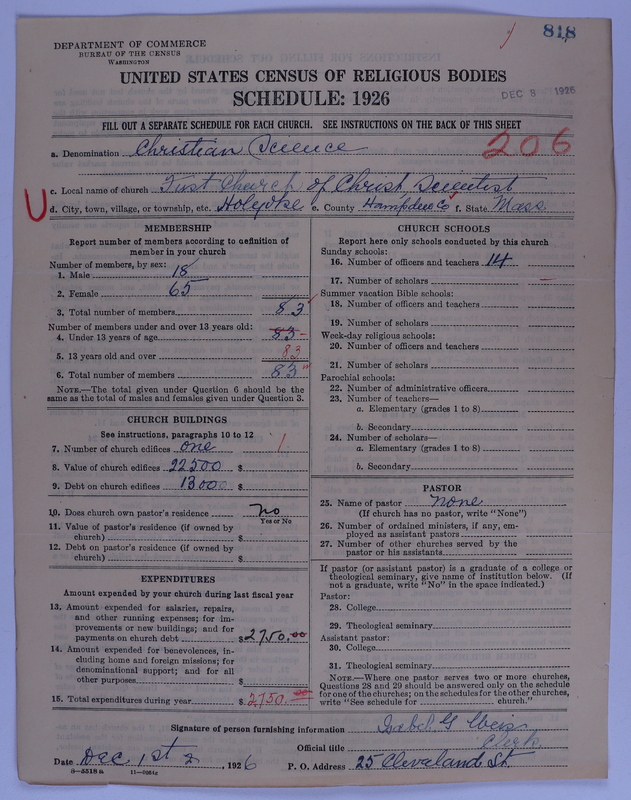 818
DEPARTMENT OF COMMERCE
BUREAU OF THE CENSUS
WASHINGTON
UNITED STATES CENSUS OF RELIGIOUS BODIES
SCHEDULE: 1926
DEC 8 1926
FILL OUT A SEPARATE SCHEDULE FOR EACH CHURCH. SEE INSTRUCTIONS ON THE BACK OF THIS SHEET
a. Denomination Christian Science
206
c. Local name of church First Church of Christ Scientist
U d. City, town, village, or township, etc. Holyoke e. County Hampden Co f. State Mass.
MEMBERSHIP
Report number of members according to definition of
member in your church
Number of members, by sex:
1. Male 18
2. Female 65
3. Total number of members 83
Number of members under and over 13 years old:
4. Under 13 years of age 83
5. 13 years old and over 83
6. Total number of members 83
NOTE.—The total given under Question 6 should be the
same as the total of males and females given under Question 3.
CHURCH BUILDINGS
See instructions, paragraphs 10 to 12
7. Number of church edifices one 1
8. Value of church edifices 22500 $
9. Debt on church edifices 13000 $
10. Does church own pastor's residence no
Yes or No
11. Value of pastor's residence (if owned by
church) $
12. Debt on pastor's residence (if owned by
church) $
EXPENDITURES
Amount expended by your church during last fiscal year
13. Amount expended for salaries, repairs,
and other running expenses; for im-
provements or new buildings; and for
payments on church debt $2750.00
14. Amount expended for benevolences, in-
cluding home and foreign missions; for
denominational support; and for all
other purposes $
15. Total expenditures during year $2750.00
CHURCH SCHOOLS
Report here only schools conducted by this church
Sunday schools:
16. Number of officers and teachers 14
17. Number of scholars —
Summer vacation Bible schools:
18. Number of officers and teachers
19. Number of scholars
Week-day religious schools:
20. Number of officers and teachers
21. Number of scholars
Parochial schools:
22. Number of administrative officers
23. Number of teachers—
a. Elementary (grades 1 to 8)
b. Secondary
24. Number of scholars—
a. Elementary (grades 1 to 8)
b. Secondary
PASTOR
25. Name of pastor none
(If church has no pastor, write "None")
26. Number of ordained ministers, if any, em-
ployed as assistant pastors
27. Number of other churches served by the
pastor or his assistants
If pastor (or assistant pastor) is a graduate of a college or
theological seminary, give name of institution below. (If
not a graduate, write "No" in the space indicated.)
Pastor:
28. College
29. Theological seminary
Assistant pastor:
30. College
31. Theological seminary
NOTE.—Where one pastor serves two or more churches,
Questions 28 and 29 should be answered only on the schedule
for one of the churches; on the schedules for the other churches,
write "See schedule for church."
Signature of person furnishing information Isabel G
Official title Clerk
Date Dec 1st, 1926 P. O. Address 25 Cleveland St.